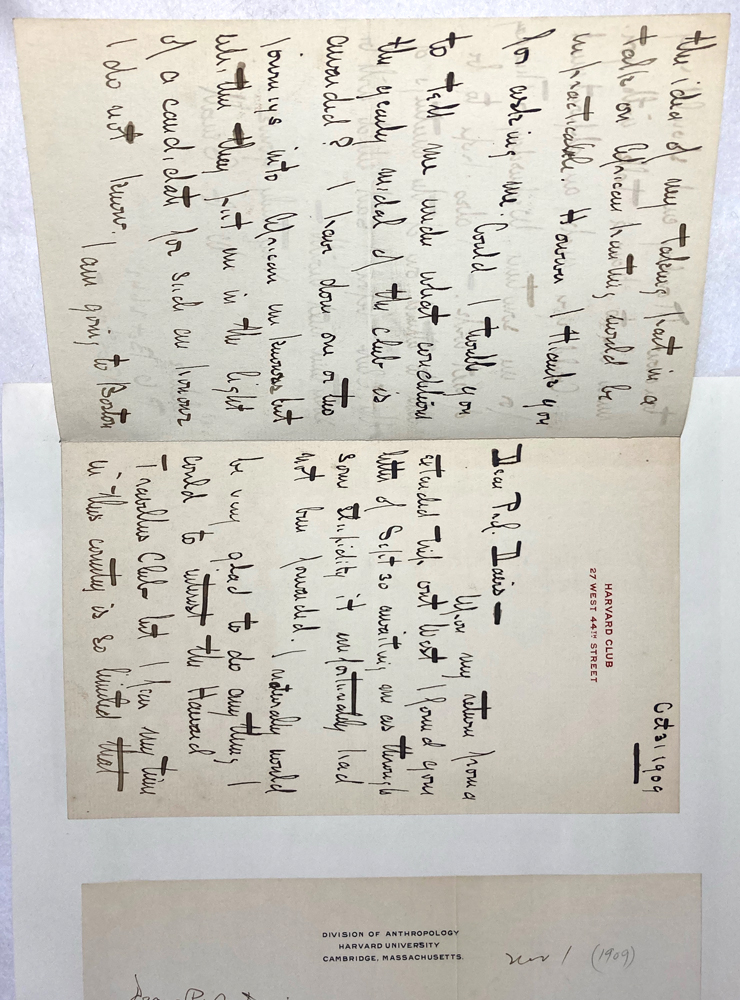 HARVARD CLUB
27 WEST 44TH STREET
Oct 31 1909
Dear Prof. Davis—
Upon my return from a
extended trip out West I found your
letter of Sept 30 awaiting me as through
some stupidity it unfortunately had
not been forwarded. I naturally would
be very glad to do anything I
could to interest the Harvard
Travellers Club but I fear my time
in this country is so limited that
the idea of my taking part in a
talk on African hunting would be
impracticable. However I thank you
for asking me. Could I trouble you
to tell me under what conditions
the yearly medal of the club is
awarded? I have done one or two
journeys into African unknowns but
whether they put me in the light
of a candidate for such an honour
I do not know. I am going to Boston
DIVISION OF ANTHROPOLOGY
HARVARD UNIVERSITY
CAMBRIDGE, MASSACHUSETTS.
Nov 1 (1909)